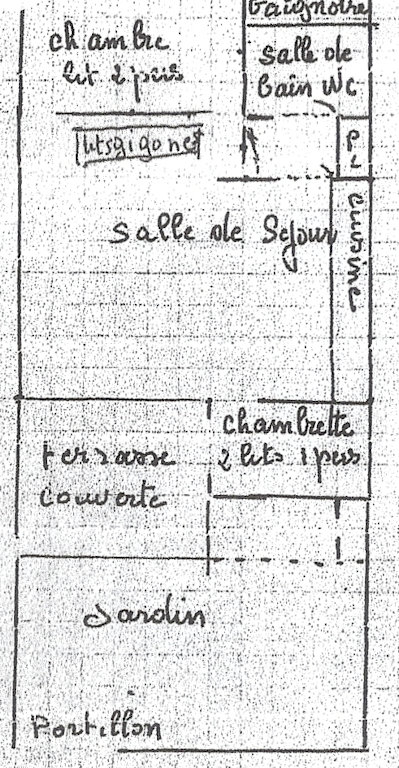 baignoire
chambre
lit 2 pers
salle de
bain WC
lits gigognes
Pl
salle de Sejour
cuisine
chambrette
2 lits 1 pers
terrasse
couverte
Jardin
Portillon